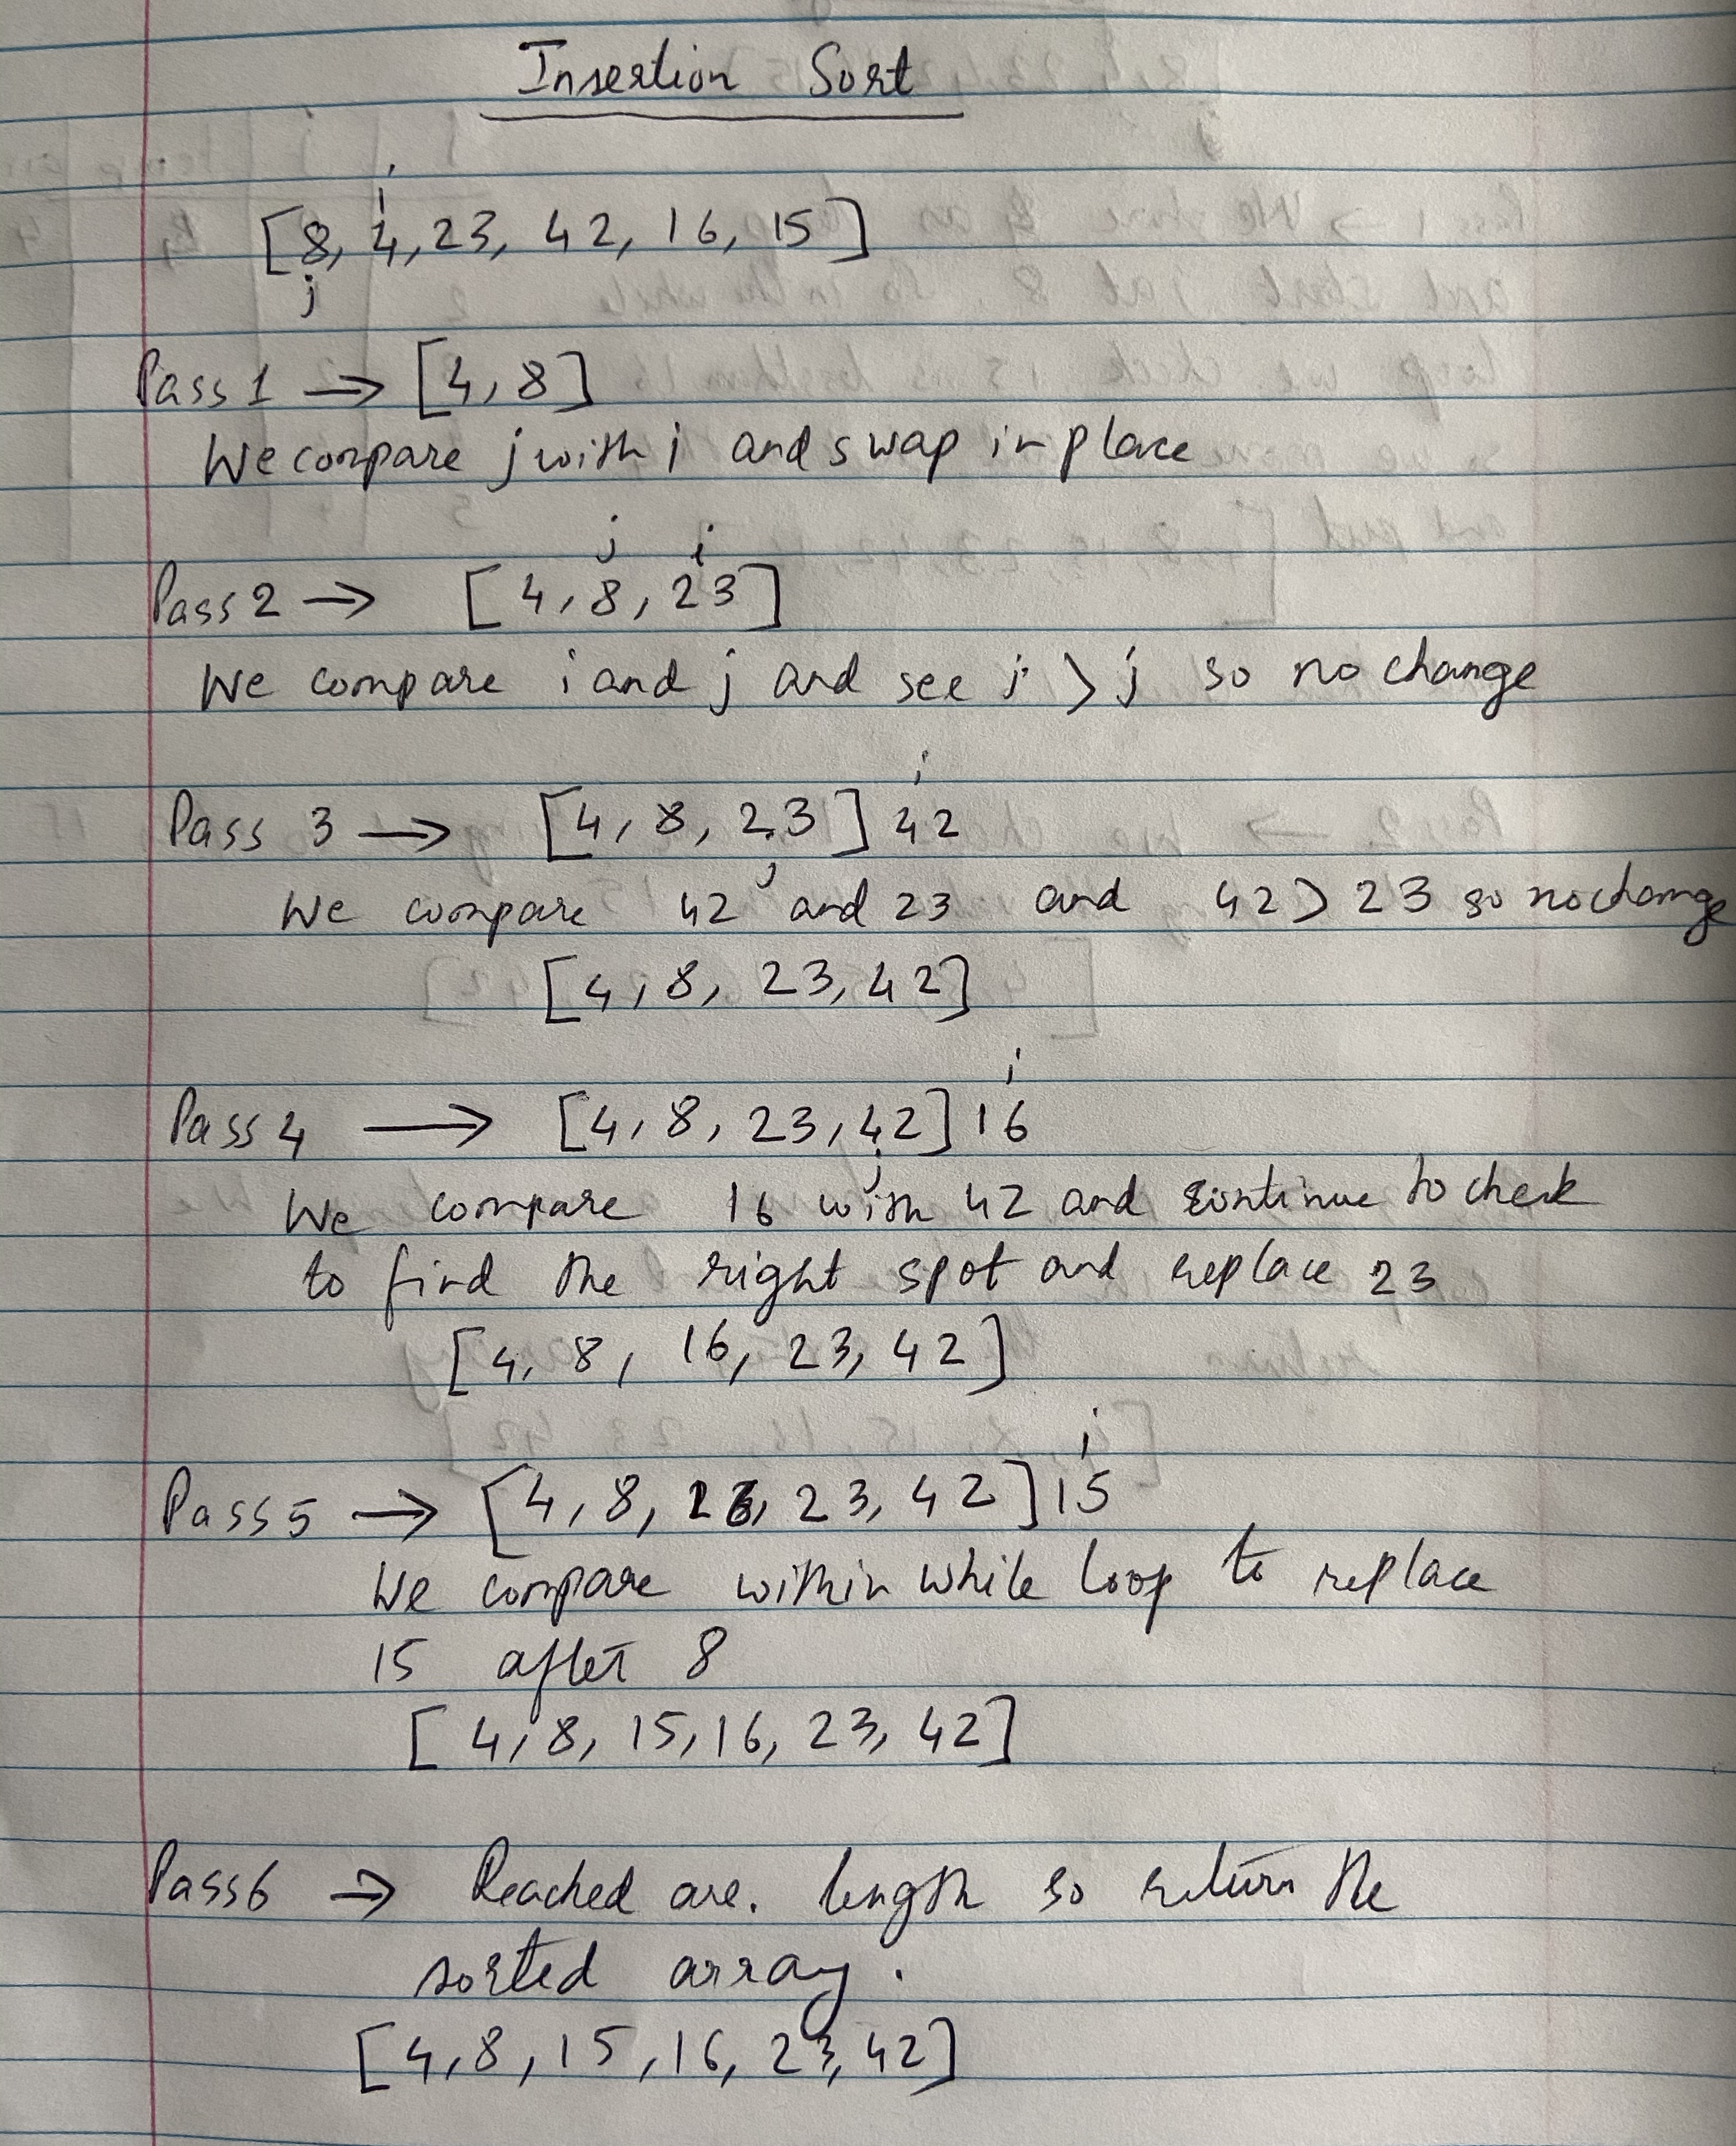 Insertion Sort
i
[8, 4, 23, 42, 16, 15]
j
Pass 1 → [4, 8]
We compare j with i and swap in place
j i
Pass 2 → [4, 8, 23]
We compare i and j and see i > j so no change
i
Pass 3 → [4, 8, 23] 42
j
We compare 42 and 23 and 42 > 23 so no change
[4, 8, 23, 42]
i
Pass 4 → [4, 8, 23, 42] 16
j
We compare 16 with 42 and continue to check
to find the right spot and replace 23
[4, 8, 16, 23, 42]
i
Pass 5 → [4, 8, 16, 23, 42] 15
We compare within while loop to replace
15 after 8
[4, 8, 15, 16, 23, 42]
Pass 6 → Reached arr. length so return the
sorted array.
[4, 8, 15, 16, 23, 42]